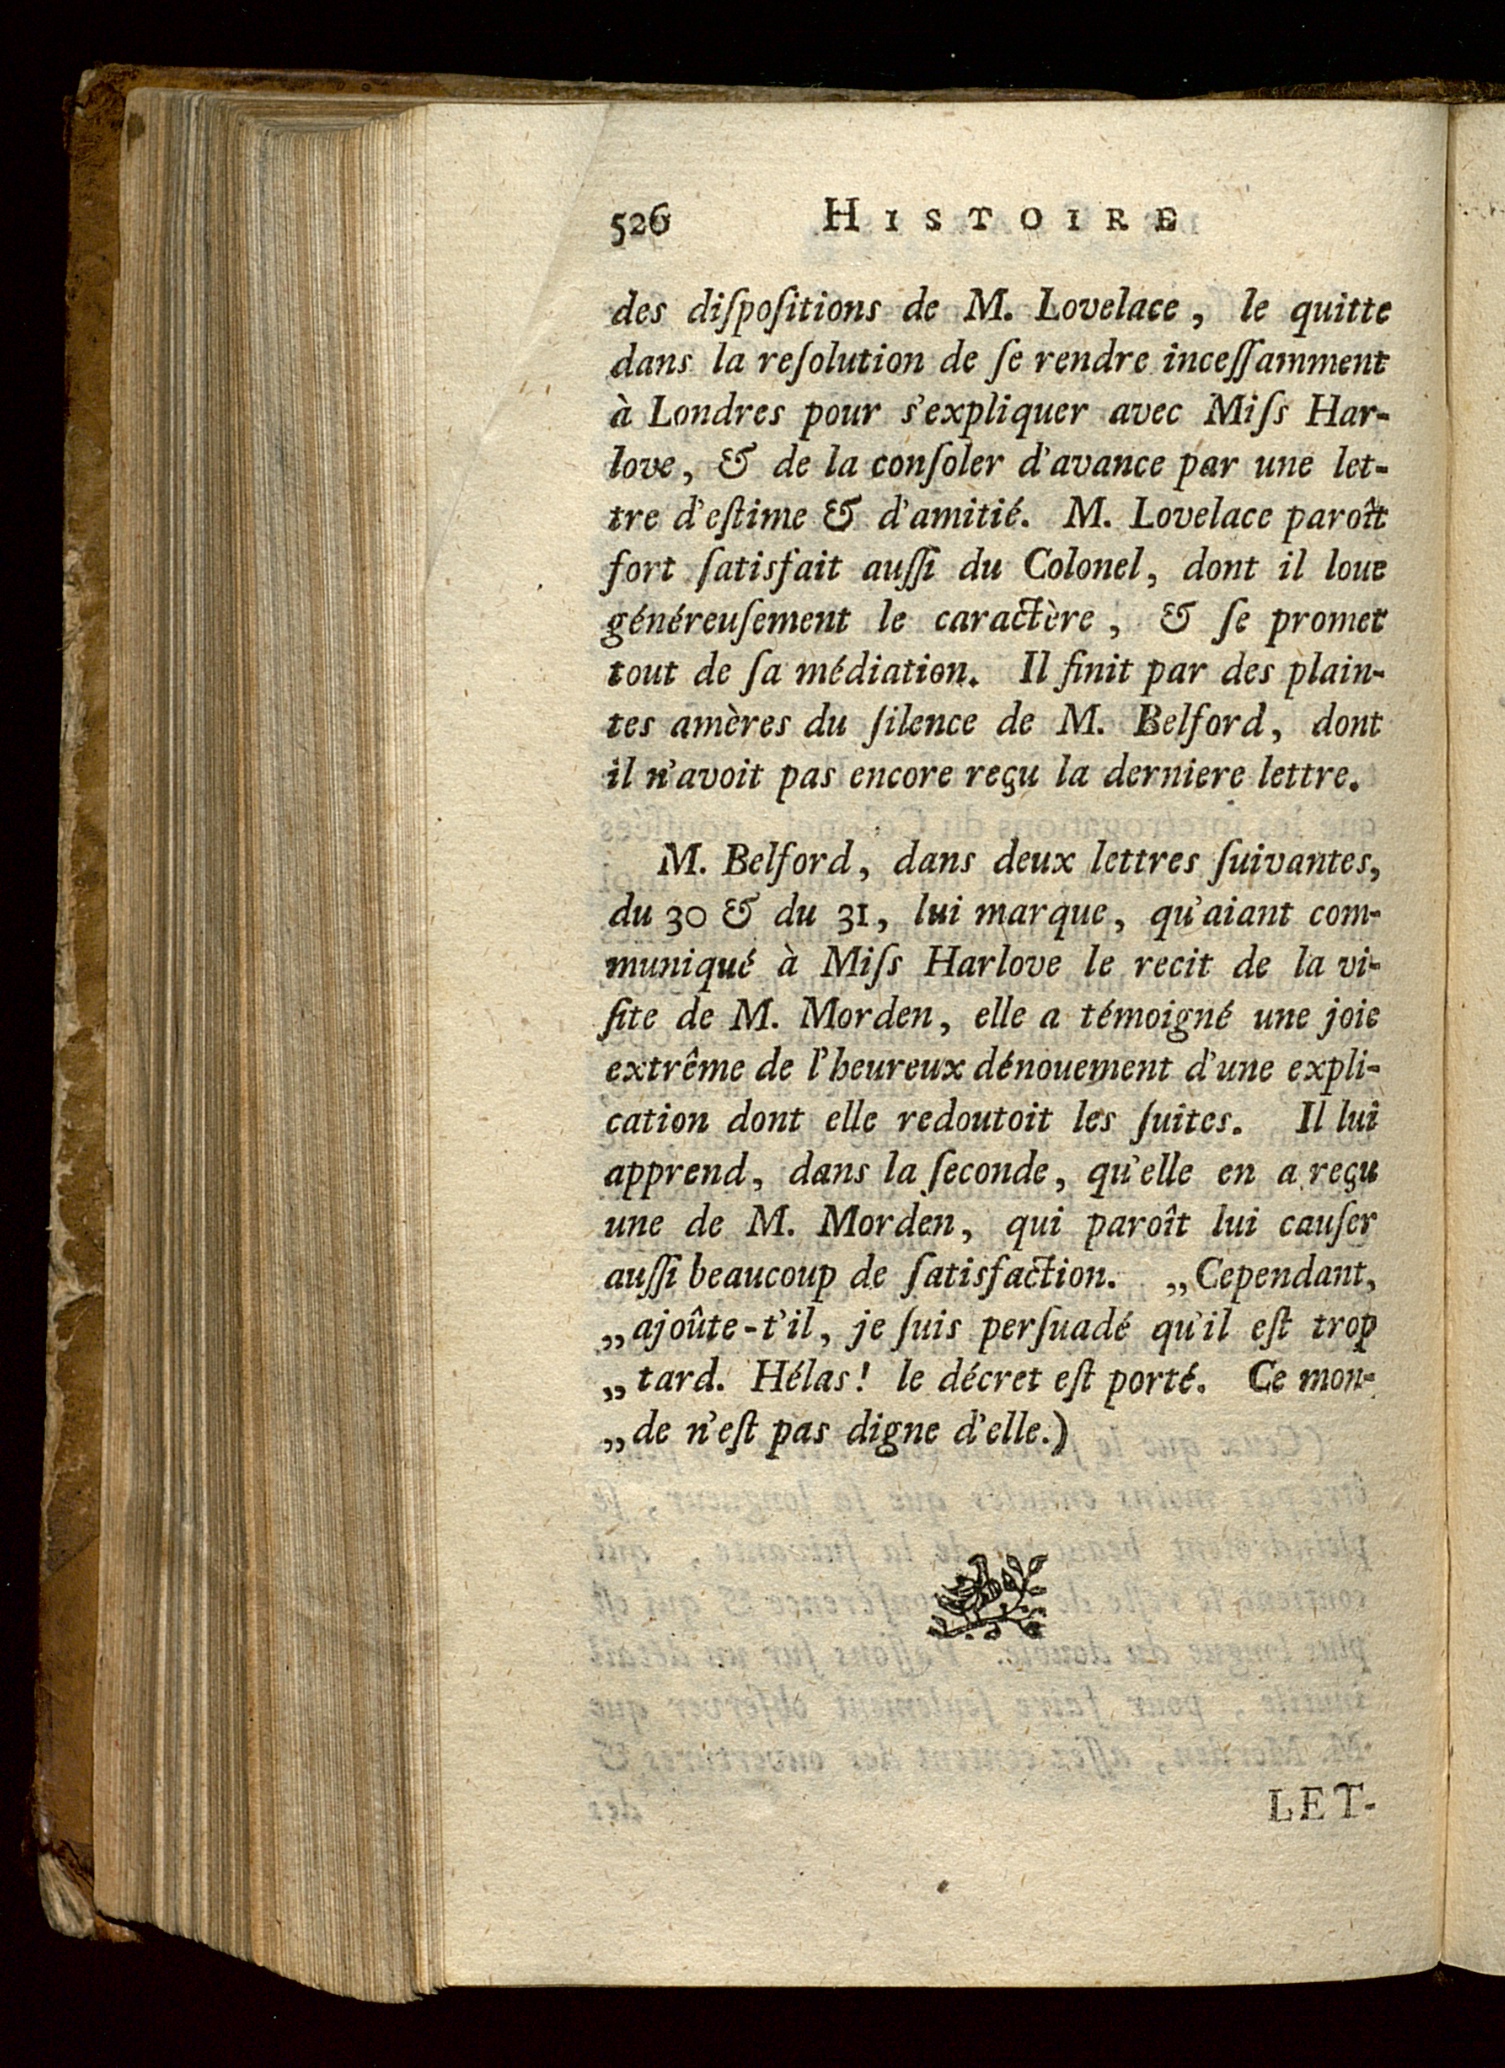 526 HISTOIRE
des diſpoſitions de M. Lovelace, le quitte
dans la reſolution de ſe rendre inceſſamment
à Londres pour s'expliquer avec Miſs Har-
love, & de la conſoler d'avance par une let-
tre d'eſtime & d'amitié. M. Lovelace paroît
fort ſatisfait auſſi du Colonel, dont il loue
généreuſement le caractère, & ſe promet
tout de ſa médiation. Il finit par des plain-
tes amères du ſilence de M. Belford, dont
il n'avoit pas encore reçu la derniere lettre.
M. Belford, dans deux lettres ſuivantes,
du 30 & du 31, lui marque, qu'aiant com-
muniqué à Miſs Harlove le recit de la vi-
ſite de M. Morden, elle a témoigné une joie
extrême de l'heureux dénouement d'une expli-
cation dont elle redoutoit les ſuites. Il lui
apprend, dans la ſeconde, qu'elle en a reçu
une de M. Morden, qui paroît lui cauſer
auſſi beaucoup de ſatisfaction. „Cependant,
„ajoûte-t'il, je ſuis perſuadé qu'il eſt trop
„tard. Hélas! le décret eſt porté. Ce mon-
„de n'eſt pas digne d'elle.)
LET-